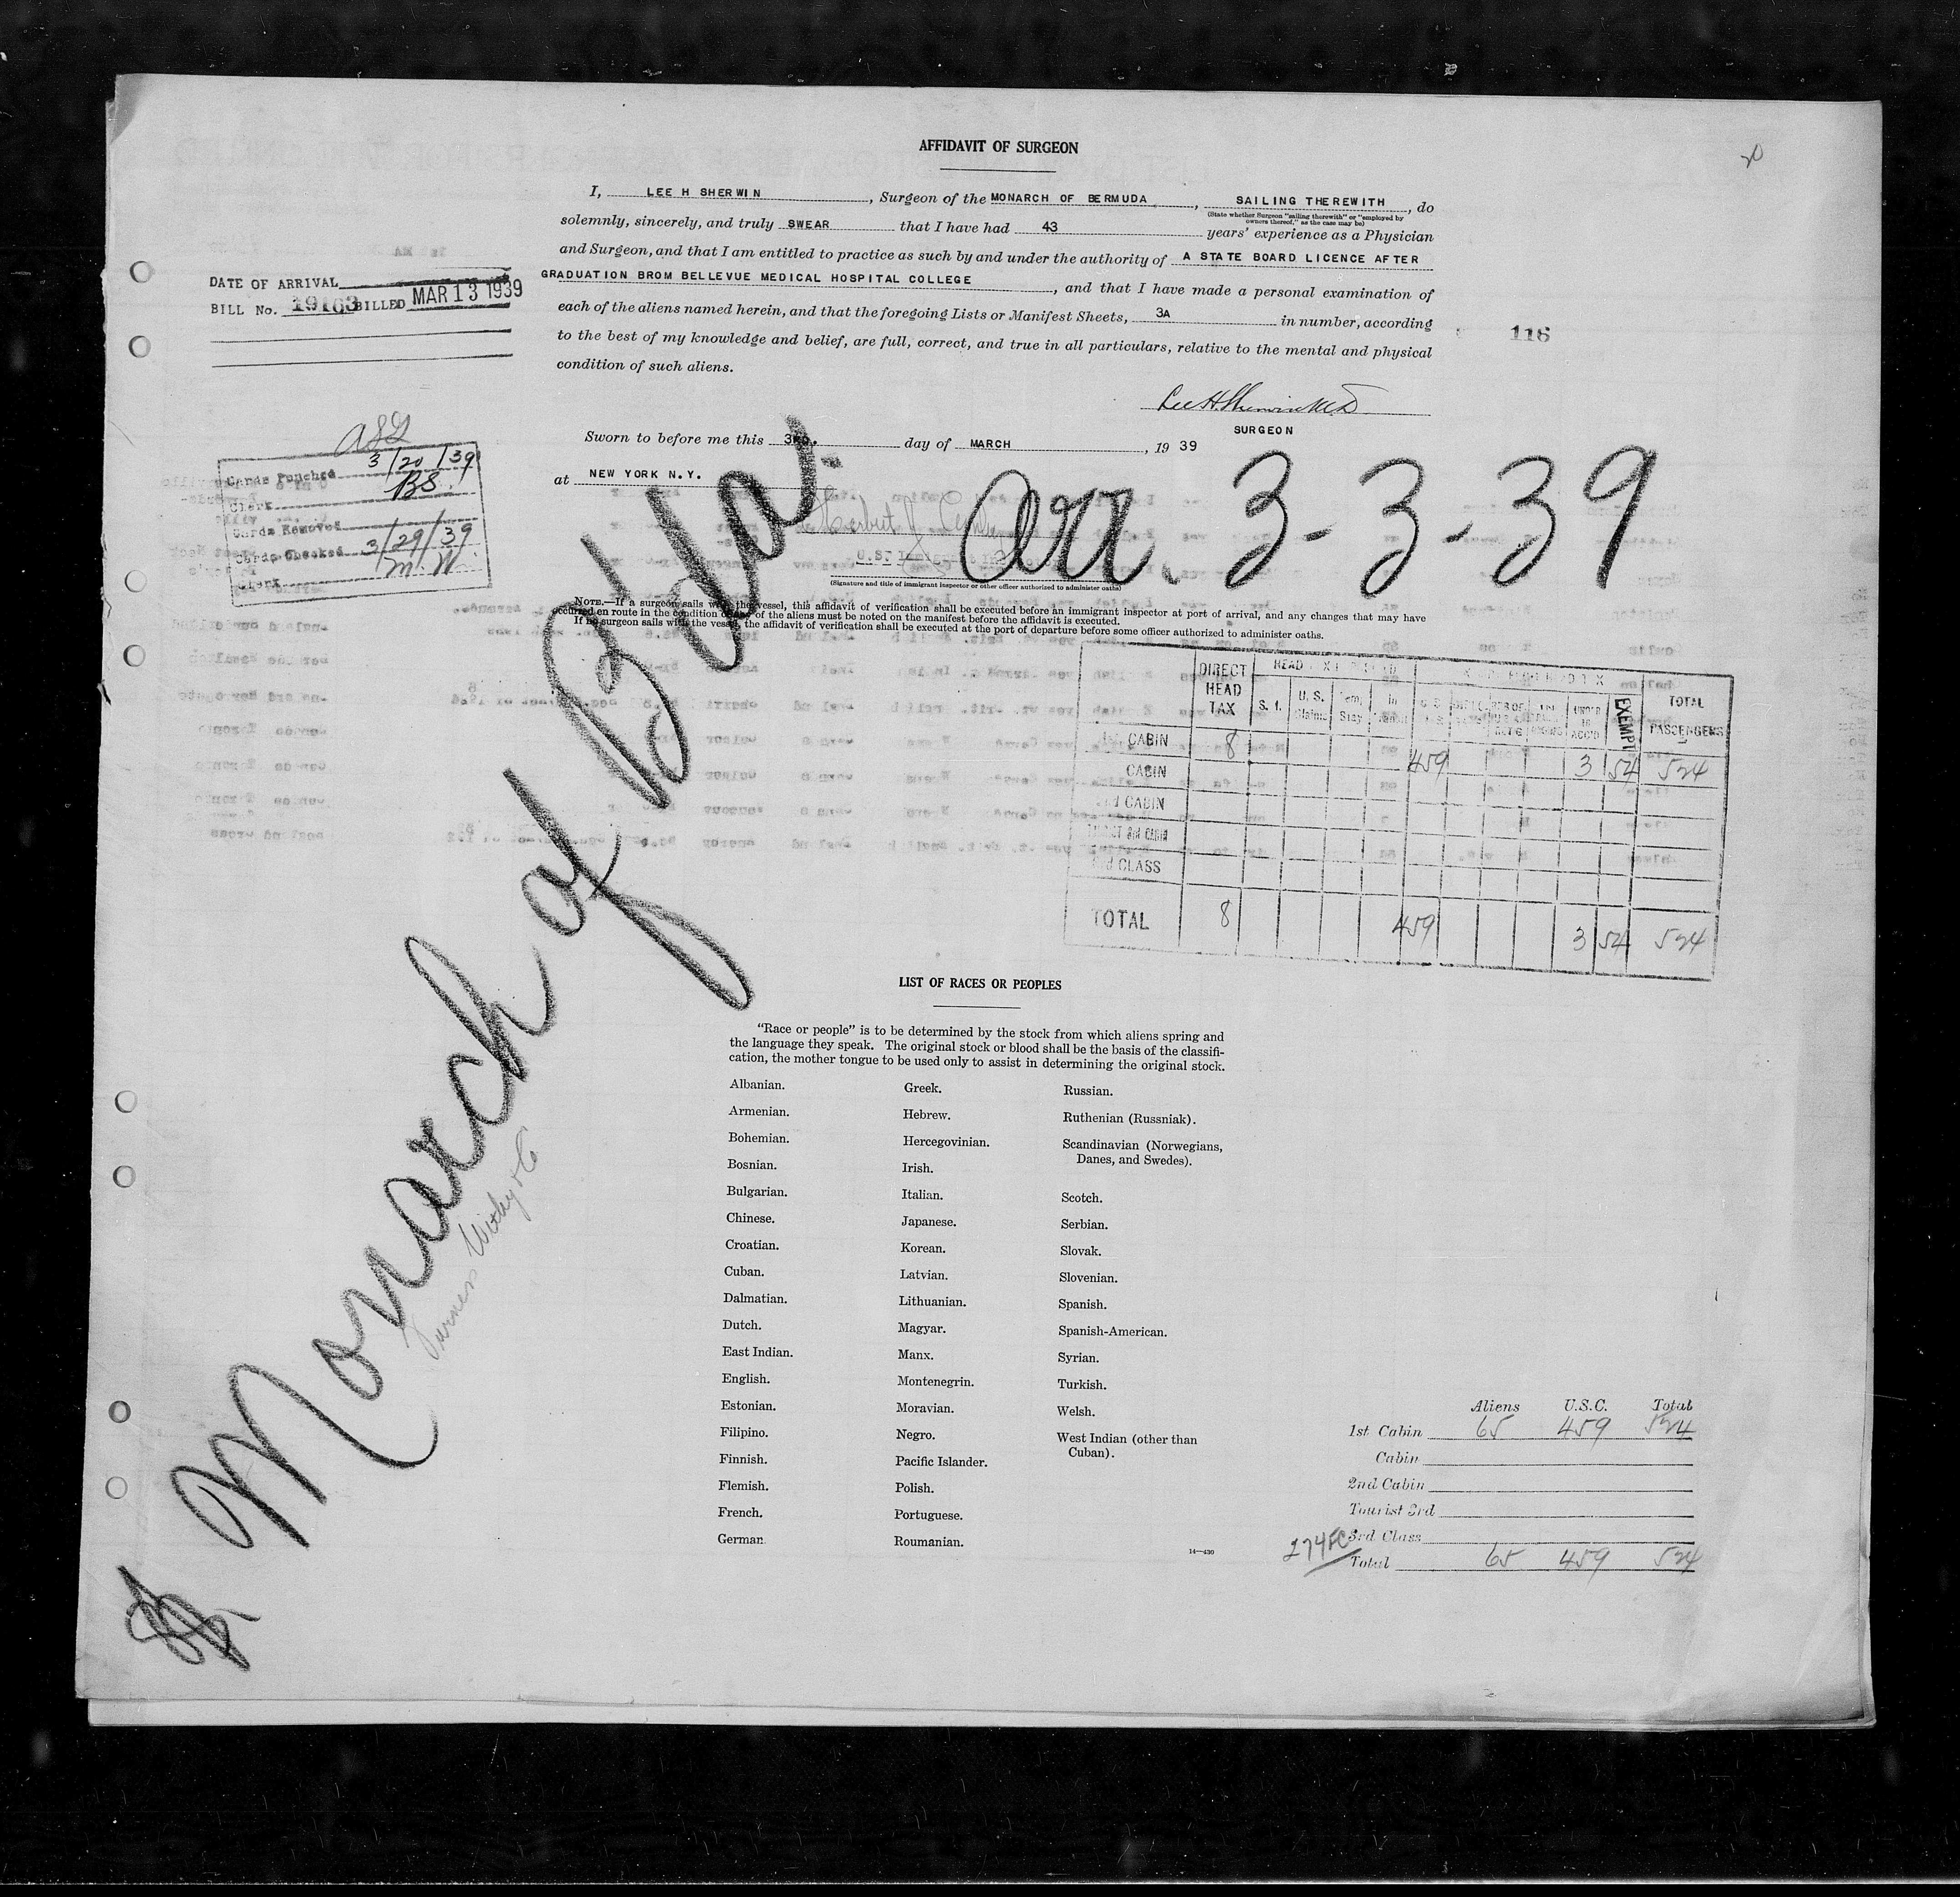 AFFIDAVIT OF SURGEON
20
I, LEE H SHERWIN, Surgeon of the MONARCH OF BERMUDA, SAILING THEREWITH, do
(State whether Surgeon "sailing therewith" or "employed by owners thereof," as the case may be)
solemnly, sincerely, and truly SWEAR that I have had 43 years' experience as a Physician
and Surgeon, and that I am entitled to practice as such by and under the authority of A STATE BOARD LICENCE AFTER
GRADUATION BROM BELLEVUE MEDICAL HOSPITAL COLLEGE, and that I have made a personal examination of
each of the aliens named herein, and that the foregoing Lists or Manifest Sheets, 3A in number, according
to the best of my knowledge and belief, are full, correct, and true in all particulars, relative to the mental and physical
condition of such aliens.
DATE OF ARRIVAL
BILL No. 19163 BILLED MAR 13 1939
116
Lee H Sherwin M.D.
SURGEON
Sworn to before me this 3RD. day of MARCH, 19 39
at NEW YORK N.Y.
Cards Punched 3/20/39
Clerk BS.
Cards Removed
Cards Checked 3/29/39
Clerk M.W.
Arr. 3-3-39
(Signature and title of immigrant inspector or other officer authorized to administer oaths)
NOTE.—If a surgeon sails with the vessel, this affidavit of verification shall be executed before an immigrant inspector at port of arrival, and any changes that may have
occurred en route in the condition of any of the aliens must be noted on the manifest before the affidavit is executed.
If no surgeon sails with the vessel, the affidavit of verification shall be executed at the port of departure before some officer authorized to administer oaths.
Monarch of B'da.
Furness Withy & Co
DIRECT HEAD TAX S. I. U. S. Claims Temp Stay In Transit UNDER 16 ACC'D EXEMPT TOTAL PASSENGERS
1st CABIN 8 459 3 54 524
CABIN
2nd CABIN
TOURIST 3rd CABIN
3rd CLASS
TOTAL 8 459 3 54 524
LIST OF RACES OR PEOPLES
"Race or people" is to be determined by the stock from which aliens spring and
the language they speak. The original stock or blood shall be the basis of the classifi-
cation, the mother tongue to be used only to assist in determining the original stock.
Albanian.
Armenian.
Bohemian.
Bosnian.
Bulgarian.
Chinese.
Croatian.
Cuban.
Dalmatian.
Dutch.
East Indian.
English.
Estonian.
Filipino.
Finnish.
Flemish.
French.
German.
Greek.
Hebrew.
Hercegovinian.
Irish.
Italian.
Japanese.
Korean.
Latvian.
Lithuanian.
Magyar.
Manx.
Montenegrin.
Moravian.
Negro.
Pacific Islander.
Polish.
Portuguese.
Roumanian.
Russian.
Ruthenian (Russniak).
Scandinavian (Norwegians,
Danes, and Swedes).
Scotch.
Serbian.
Slovak.
Slovenian.
Spanish.
Spanish-American.
Syrian.
Turkish.
Welsh.
West Indian (other than
Cuban).
14—430
Aliens U.S.C. Total
1st Cabin 65 459 524
Cabin
2nd Cabin
Tourist 3rd
3rd Class
Total 65 459 524